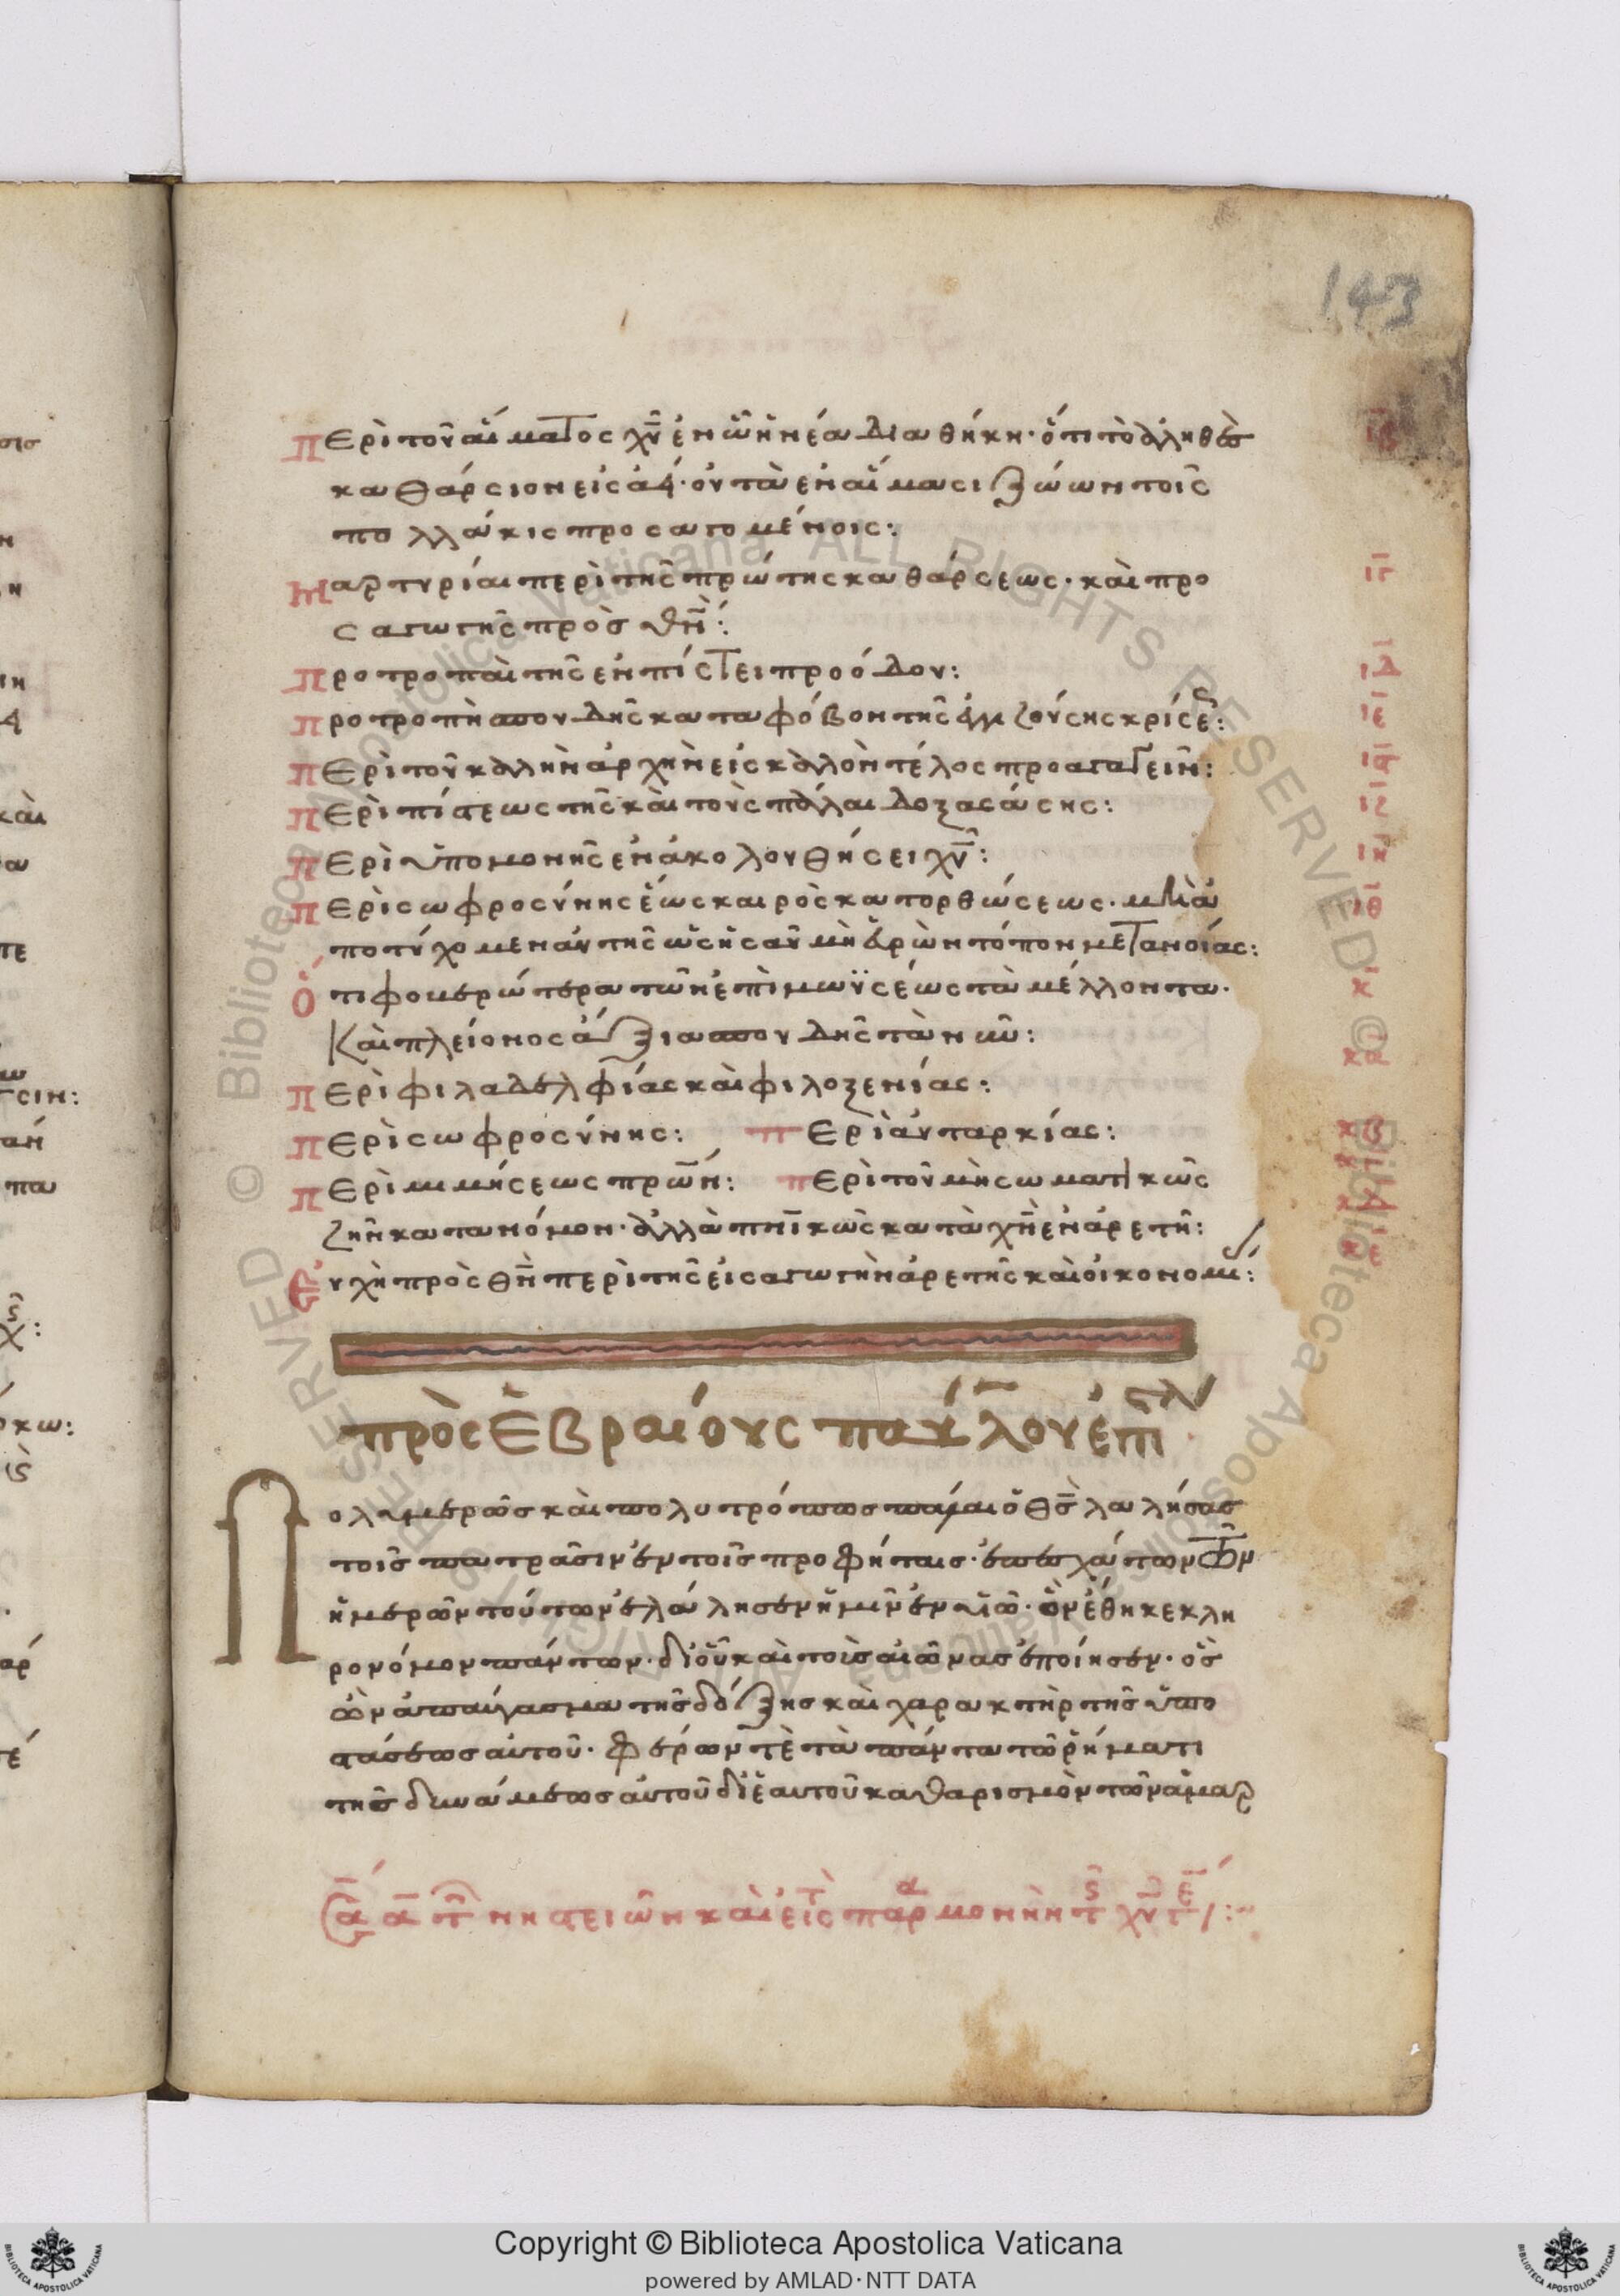 143
Περὶ τοῦ αἵματος χῦ ἐν ᾧ ἡ νέα διαθήκη· ὅτι τὸ ἀληθῶς
καθάρσιον εἰς ἀεί· οὐ τὰ ἐν αἵμασι ζώων τοῖς
πολλάκις προσαγομένοις:
Μαρτυρίαι περὶ τῆς πρώτης καθάρσεως· καὶ προ
σαγωγῆς πρὸς θν:
Προτροπαὶ τῆς ἐν πίστει προόδου:
Προτροπὴ σπουδῆς κατα φόβον τῆς ἐγγιζούσης κρίσε:
Περὶ τοῦ καλὴν ἀρχὴν εἰς καλὸν τέλος προαγαγεῖν:
Περὶ πίστεως τῆς καὶ τοὺς πάλαι δοξασάσης:
Περὶ ὑπομονῆς ἐν ἀκολουθήσει χῦ:
Περὶ σωφροσύνης ἕως καιρὸς κατορθώσεως· μὴ ἀ
ποτύχομεν αὐτῆς ὡς ἡσαῦ μὴ εὑρὼν τόπον μετανοίας:
Ὅτι φοβερώτερα τῶν ἐπὶ μωϋσέως τὰ μέλλοντα·
Καὶ πλείονος ἀξια σπουδῆς τὰ νῦν:
Περὶ φιλαδελφίας καὶ φιλοξενίας:
Περὶ σωφροσύνης: Περὶ αὐταρκίας:
Περὶ μιμήσεως πρων: Περὶ τοῦ μὴ σωματικῶς
ζῆν κατα νόμον· ἀλλὰ πνικῶς κατὰ χν ἐν ἀρετῆ:
Εὐχὴ πρὸς θν περὶ τῆς εἰσαγωγὴν ἀρετῆς καὶ οἰκονομι:
πρὸς Ἑβραίους παύλου ἐπι
Πολυμερῶς καὶ πολυτρόπως πάλαι ὁ θς λαλήσας
τοῖς πατράσιν ἐν τοῖς προφήταις· ἐπεσχάτων τῶν
ἡμερῶν τούτων ἐλάλησεν ἡμῖν ἐν υἱῶ· ὃν ἔθηκε κλη
ρονόμον πάντων· δι οὗ καὶ τοὺς αἰῶνας ἐποίησεν· ὃς
ὢν ἀπαύγασμα τῆς δόξης καὶ χαρακτὴρ τῆς ὑπο
στάσεως αὐτοῦ· φέρων τὲ τὰ πάντα τῶ ῥήματι
τῆς δυνάμεως αὐτοῦ δι ἑαυτοῦ καθαρισμὸν τῶν ἁμαρ